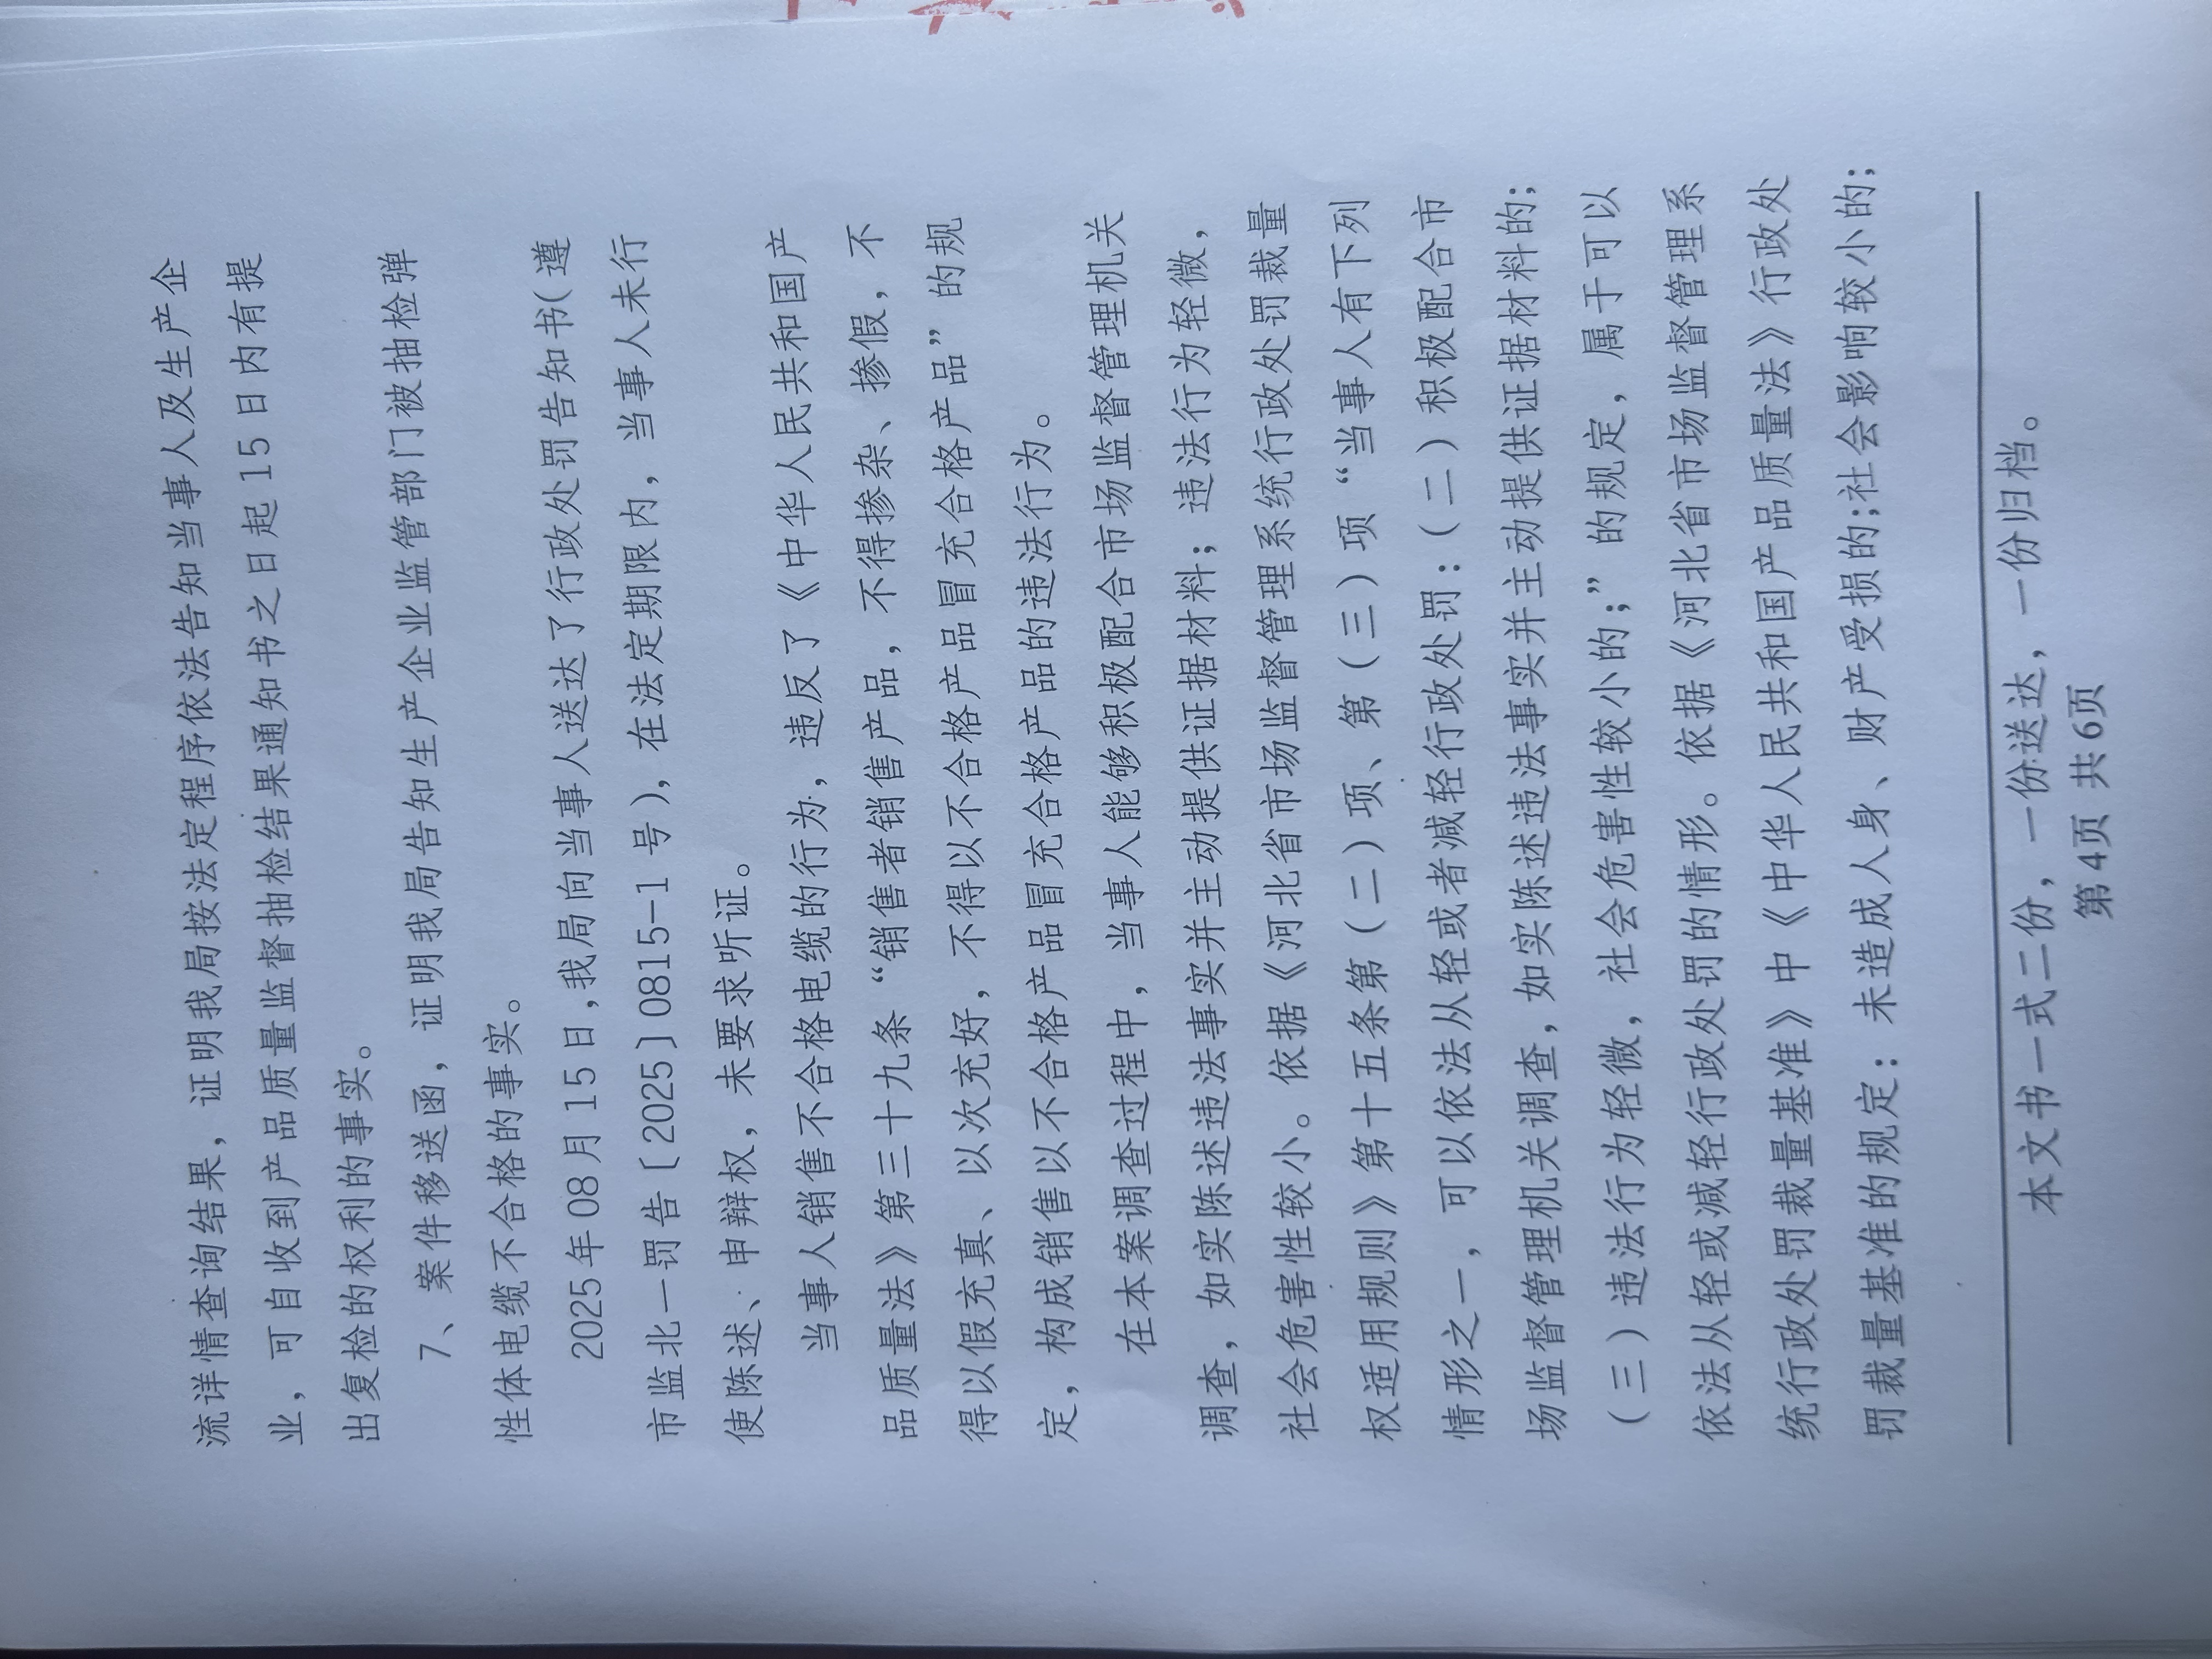 流详情查询结果，证明我局按法定程序依法告知当事人及生产企
业，可自收到产品质量监督抽检结果通知书之日起15日内有提
出复检的权利的事实。
7、案件移送函，证明我局告知生产企业监管部门被抽检弹
性体电缆不合格的事实。
2025年08月15日,我局向当事人送达了行政处罚告知书(遵
市监北一罚告〔2025〕0815-1号),在法定期限内，当事人未行
使陈述、申辩权，未要求听证。
当事人销售不合格电缆的行为，违反了《中华人民共和国产
品质量法》第三十九条“销售者销售产品，不得掺杂、掺假，不
得以假充真、以次充好，不得以不合格产品冒充合格产品”的规
定，构成销售以不合格产品冒充合格产品的违法行为。
在本案调查过程中，当事人能够积极配合市场监督管理机关
调查，如实陈述违法事实并主动提供证据材料；违法行为轻微，
社会危害性较小。依据《河北省市场监督管理系统行政处罚裁量
权适用规则》第十五条第（二）项、第（三）项“当事人有下列
情形之一，可以依法从轻或者减轻行政处罚：（二）积极配合市
场监督管理机关调查，如实陈述违法事实并主动提供证据材料的；
（三）违法行为轻微，社会危害性较小的；”的规定，属于可以
依法从轻或减轻行政处罚的情形。依据《河北省市场监督管理系
统行政处罚裁量基准》中《中华人民共和国产品质量法》行政处
罚裁量基准的规定：未造成人身、财产受损的;社会影响较小的;
本文书一式二份，一份送达，一份归档。
第4页 共6页